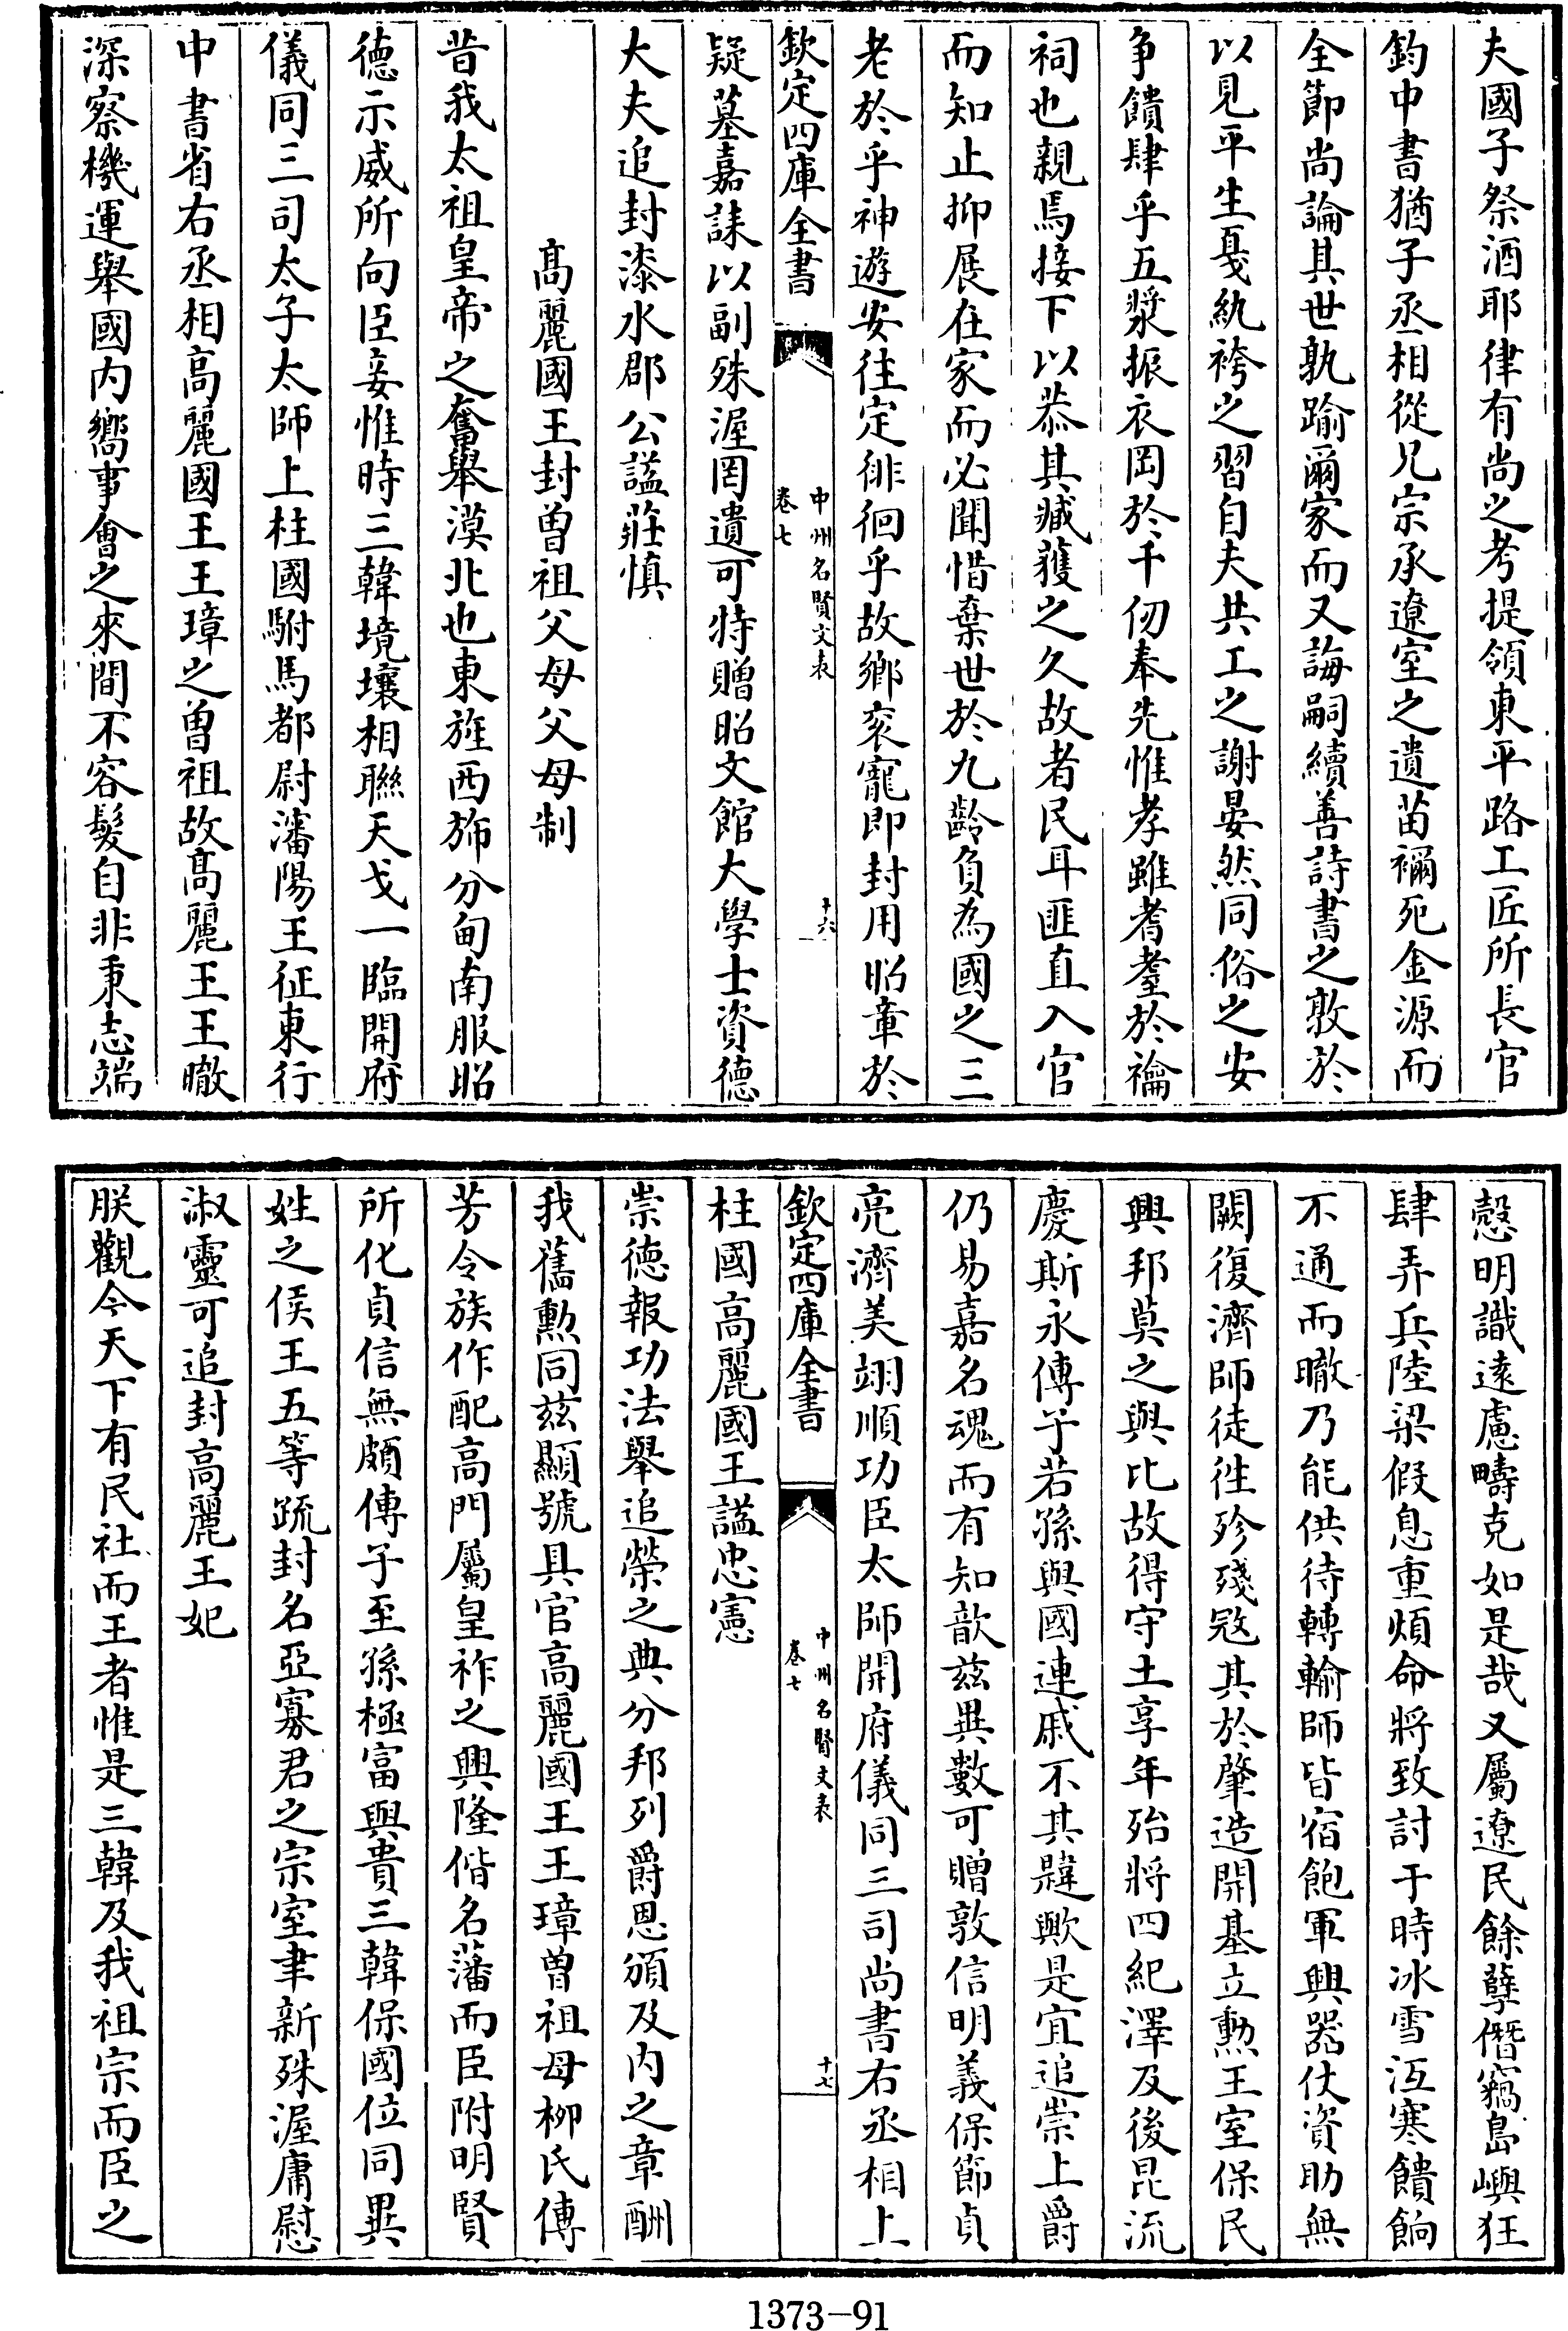 夫國子祭酒耶律有尚之考提領東平路工匠所長官
鈞中書猶子丞相從兄宗承遼室之遺苗禰死金源而
全節尚論其世孰踰爾家而又誨嗣續善詩書之敦於
以見平生戞紈袴之習自夫共工之謝晏然同俗之安
争饋肆乎五漿振衣岡於千仞奉先惟孝雖耆耋於禴
祠也親焉接下以恭其臧䕶之久故者民耳匪直入官
而知止抑展在家而必聞惜棄世於九齡負為國之三
老於乎神遊安往定徘徊乎故鄉衮寵即封用昭章於
欽定四庫全書
中州名賢文表
卷七
十六
疑墓嘉誄以副殊渥罔遺可特贈昭文館大學士資德
大夫追封漆水郡公諡莊慎
高麗國王封曾祖父母父母制
昔我太祖皇帝之奮舉漠北也東旌西斾分甸南服昭
德示威所向臣妾惟時三韓境壤相聯天戈一臨開府
儀同三司太子太師上柱國駙馬都尉瀋陽王征東行
中書省右丞相高麗國王王璋之曾祖故高麗王王㬚
深察機運舉國内嚮事會之來間不容髮自非秉志端
慤明識遠慮疇克如是哉又屬遼民餘孽僭竊島嶼狂
肆弄兵陸梁假息重煩命將致討于時冰雪沍寒饋餉
不通而㬚乃能供待轉輸師皆宿飽軍興器仗資助無
闕復濟師徒徃殄殘宼其於肇造開基立勲王室保民
興邦莫之與比故得守土享年殆將四紀澤及後昆流
慶斯永傳于若孫與國連戚不其韙歟是宜追崇上爵
仍易嘉名魂而有知歆兹異數可贈敦信明義保節貞
亮濟美翊順功臣太師開府儀同三司尚書右丞相上
欽定四庫全書
中州名賢文表
卷七
十七
柱國高麗國王諡忠憲
崇德報功法舉追榮之典分邦列爵恩頒及内之章酬
我舊勲同兹顯號具官高麗國王王璋曾祖母柳氏傳
芳令族作配高門屬皇祚之興隆偕名藩而臣附明賢
所化貞信無頗傳子至孫極富與貴三韓保國位同異
姓之侯王五等疏封名亞寡君之宗室聿新殊渥庸慰
淑靈可追封高麗王妃
朕觀今天下有民社而王者惟是三韓及我祖宗而臣之
1373-91